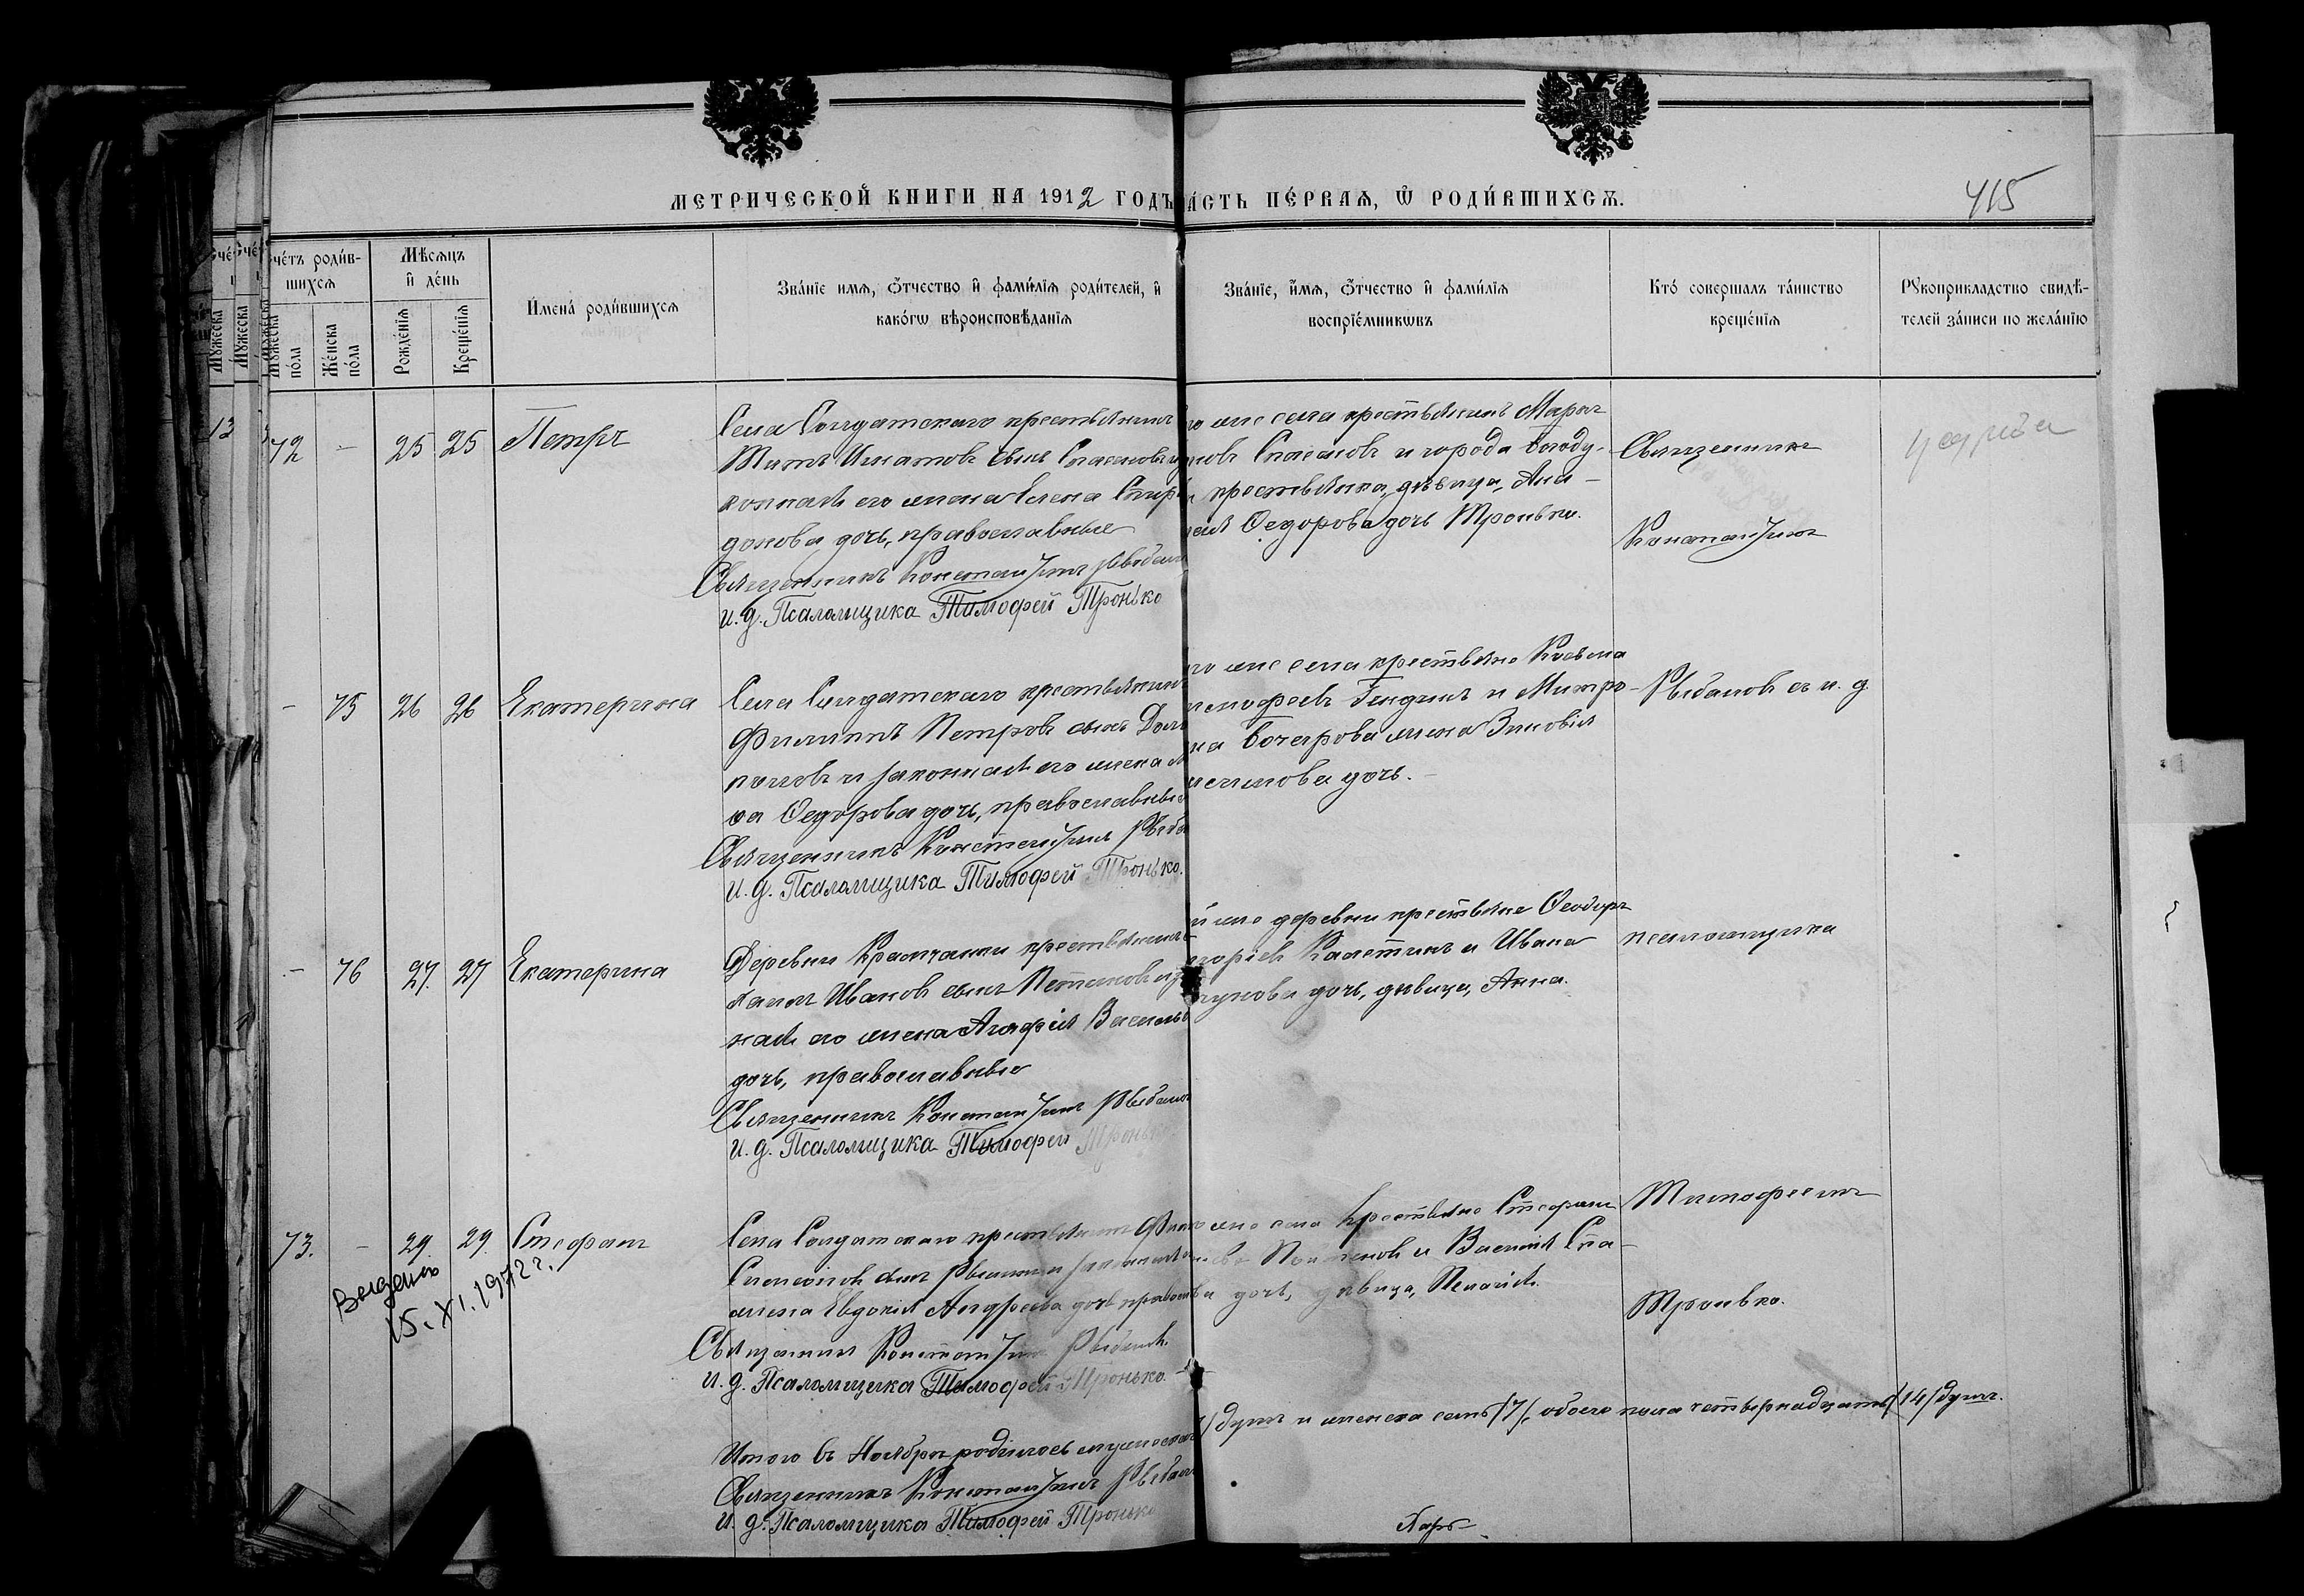 МЕТРИЧЕСКОЙ КНИГИ НА 1912 ГОДЪ
АСТЬ ПЕ́РВАѦ, Ѿ РОДИ́ВШИХСѦ.
415
че́тъ роди́в-
шихсѧ
Мꙋжеска
по́ла
Же́нска
по́ла
Мѣ́сѧцъ
и де́нь
Рожде́нїѧ
Креще́нїѧ
Имена̀ роди́вшихсѧ
Зва́нїе имѧ, ѻ҆́тчество и фами́лїѧ роди́телей, и
како́гѡ вѣроисповѣ́данїѧ
Зва́нїе, и́мѧ, ѻ҆́тчество и фами́лїѧ
воспрїе́мникѡвъ
Кто̀ соверша́лъ та́инство
креще́нїѧ
Рꙋкоприкладство свидѣ́-
телей за́писи по жела́нїю
13
72 - 25 25 Петръ
Села Солдатскаго крестьянинъ
Титъ Игнатовъ сынъ Спасеновъ и
конная его жена Елена Спири
донова дочь, православные
Священникъ Константинъ Рыбалов
и. д. Псаломщика Тимофей Тронько
го же села крестьянинъ Маркъ
новъ Спасеновъ и города Богоду-
крестьянка, дѣвица, Ана-
Ѳедорова дочь Тронько.
Священникъ
Константинъ
- 75 26 26 Екатерина
Села Солдатскаго крестьянинъ
Филиппъ Петровъ сынъ Дол
и законная его жена
Ѳедорова дочь, православные
Священникъ Константинъ Рыба
и. д. Псаломщика Тимофей Тронько.
го же села крестьяне Козьма
имофеевъ Гиндинъ и Митро-
на Бочарова жена Зиновія
дочь.
Рыбаловъ съ и. д.
- 76 27. 27 Екатерина
Деревни крестьянинъ
Иванов сынъ
ная его жена Агафія Василь
дочь, православные
Священникъ Константинъ Рыбалов
и. д. Псаломщика Тимофей Тронько
й же деревни крестьяне Ѳеодоръ
горіевъ Калетинъ и Ивана
дочь, дѣвица, Анна.
псаломщика
73. - 29. 29. Стефанъ
Села Солдатскаго крестьянинъ
сынъ и законная
жена Евдокія Андреева дочь правосл
Священникъ Константинъ Рыбаловъ
и. д. Псаломщика Тимофей Тронько.
же села крестьяне Стефанъ
и Василія Спа-
дочь, дѣвица, Пелагія.
Тимофеемъ
Тронько.
Выдано
15. XI. 1972 г.
Итого въ Ноябрѣ родилось мужеска
/ душъ и женска семь /7/, обоего пола четырнадцать /14/ душъ.
Священникъ Константинъ Рыбалов
и. д. Псаломщика Тимофей Тронько